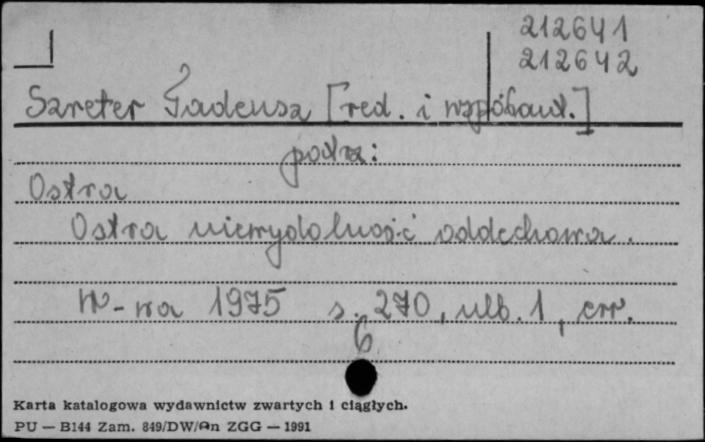 212641
212642
Szreter Tadeusz [red. i współaut.]
patrz:
Ostra
Ostra niewydolność oddechowa.
W-wa 1975 s. 270, ulb. 1, err.
6
Karta katalogowa wydawnictw zwartych i ciągłych.
PU — B144 Zam. 849/DW/An ZGG — 1991